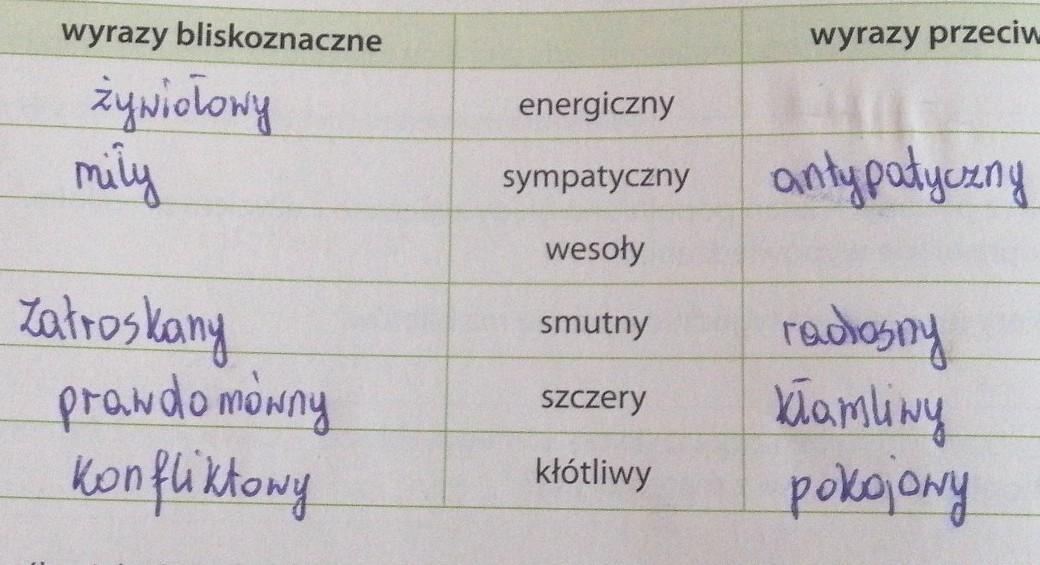 wyrazy bliskoznaczne wyrazy przeciw
żywiołowy energiczny
miły sympatyczny antypatyczny
wesoły
zatroskany smutny radosny
prawdomówny szczery kłamliwy
konfliktowy kłótliwy pokojowy